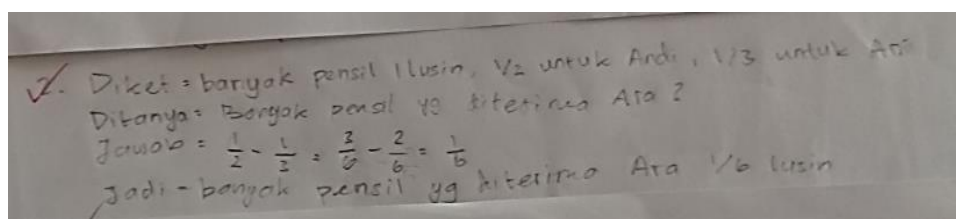 2. Diket = banyak pensil 1 lusin, 1/2 untuk Andi, 1/3 untuk Ari
Ditanya = Banyak pensil yg diterima Ara?
Jawab = 1/2 - 1/3 = 3/6 - 2/6 = 1/6
Jadi - banyak pensil yg diterima Ara 1/6 lusin